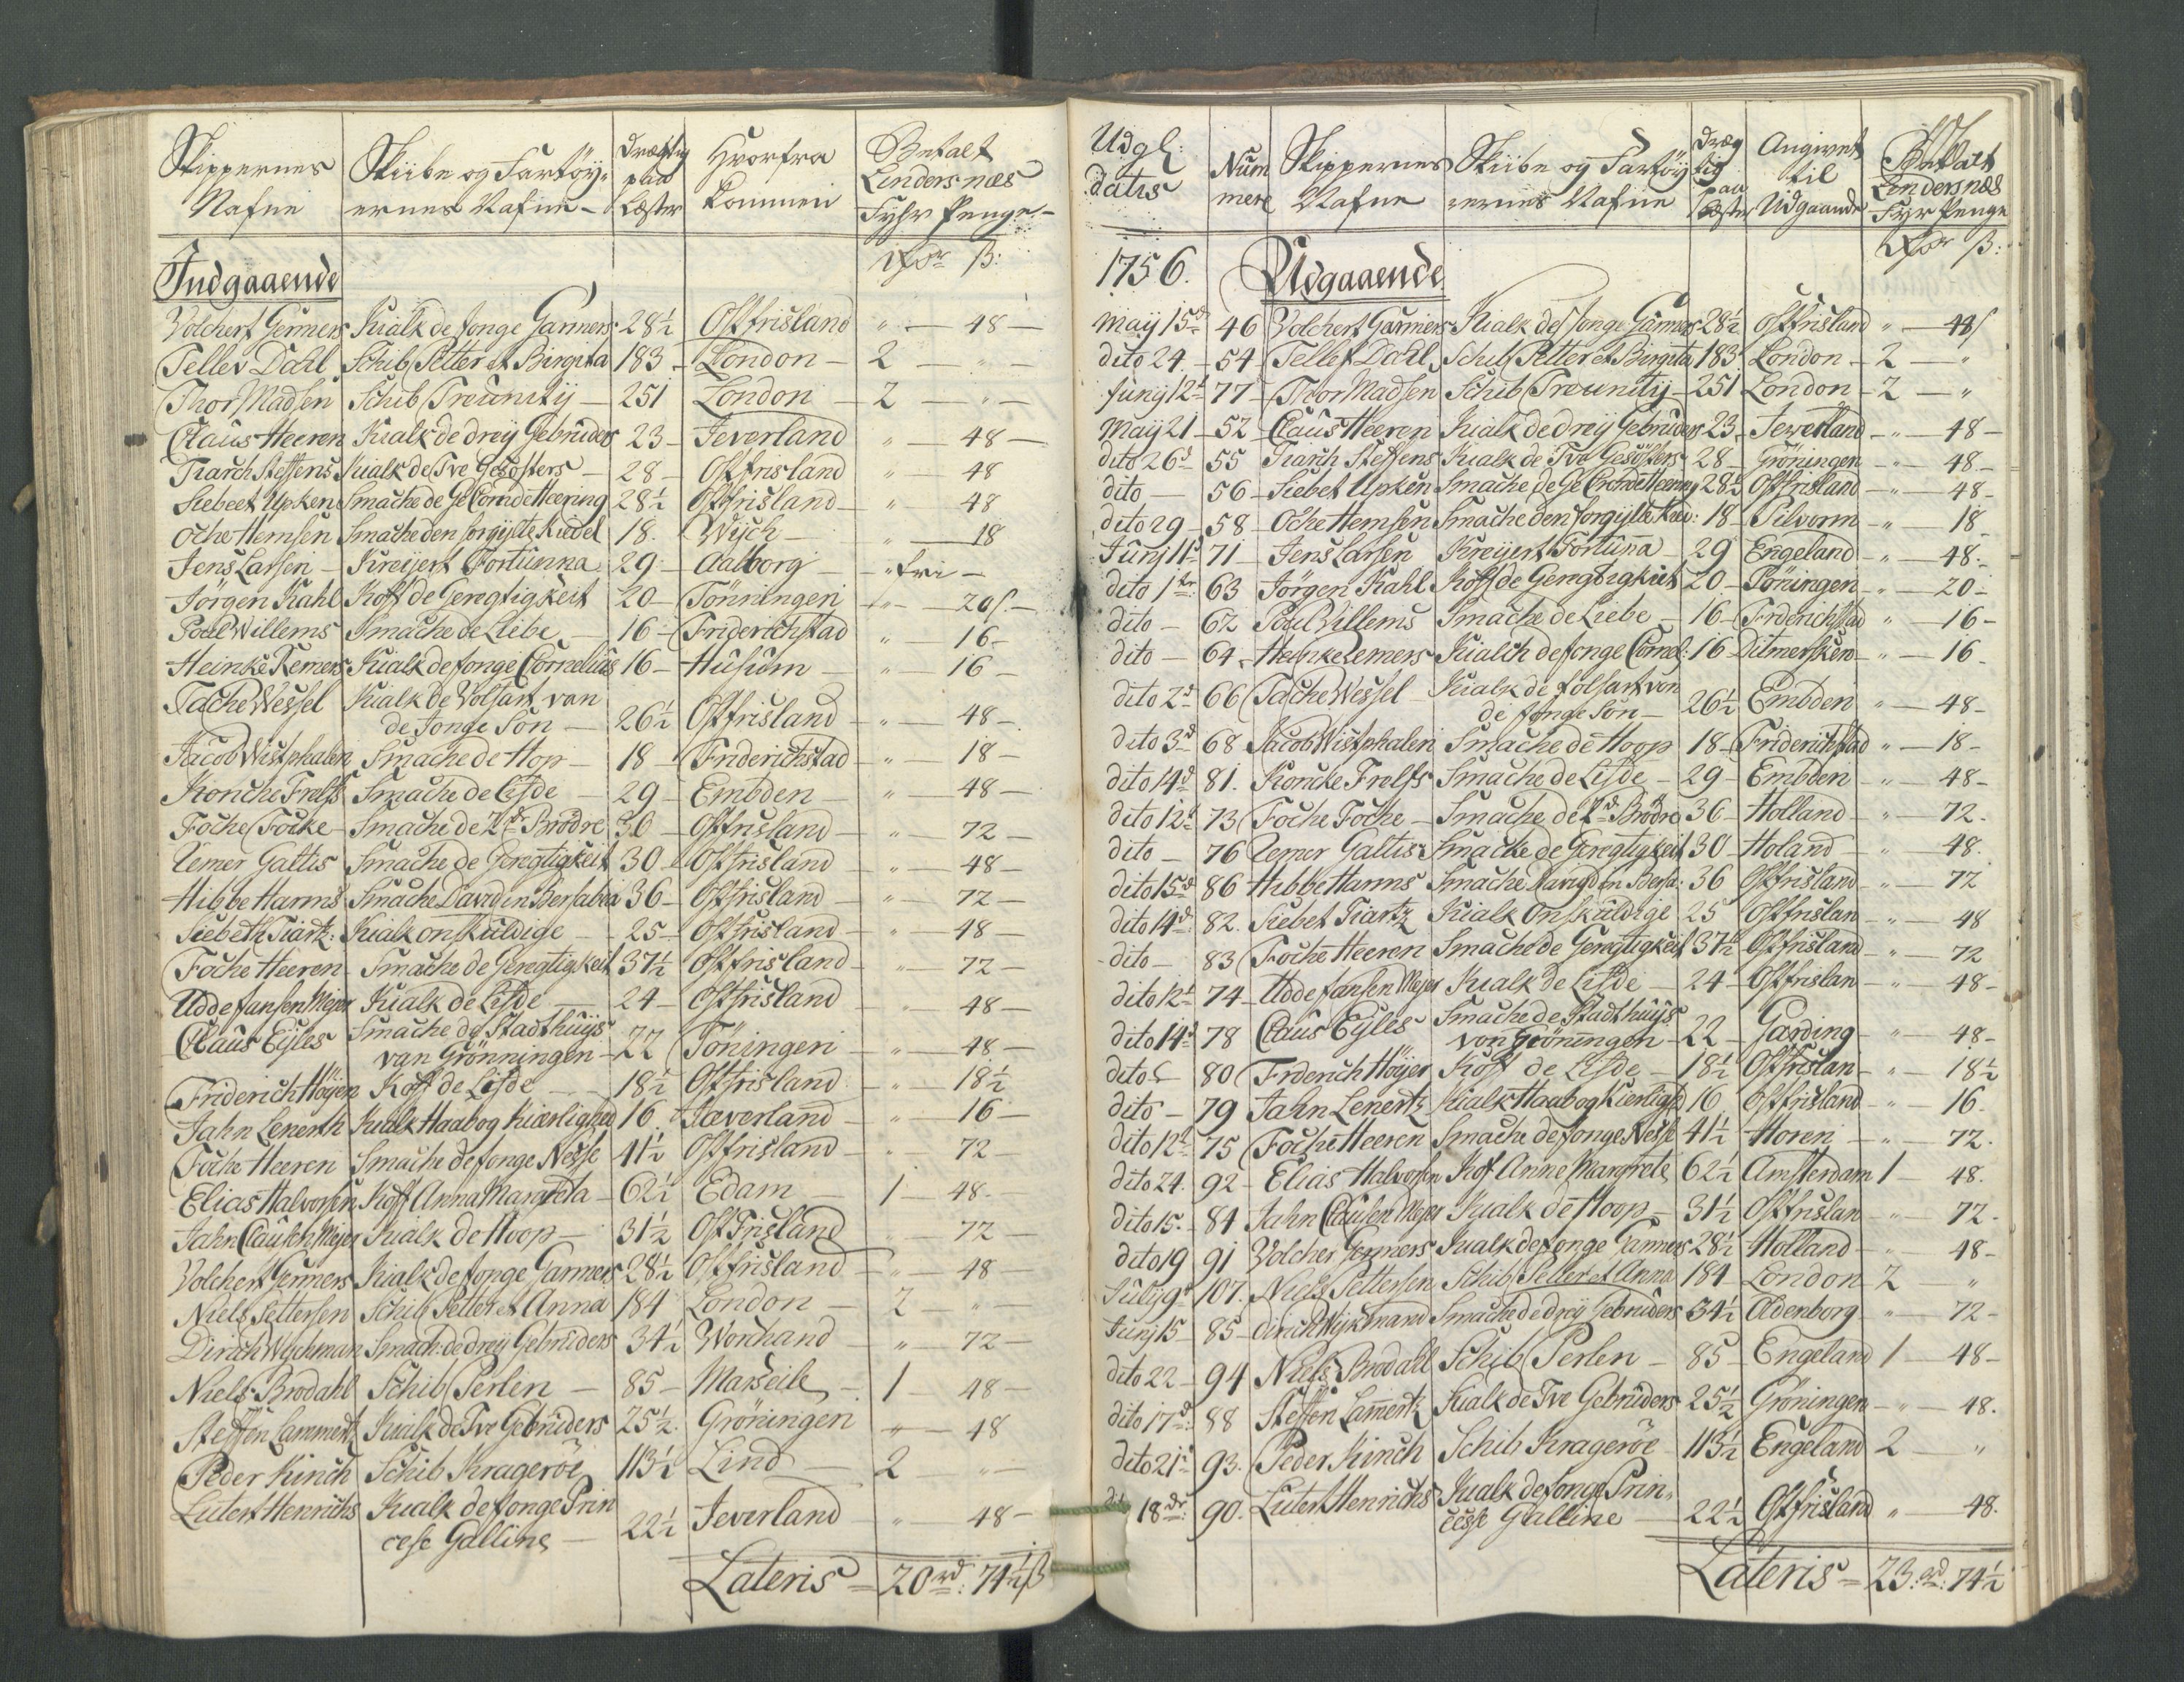 Skippernes Nafne | Skiibe og Fartöÿ-ernes Nafne | Drægtig paa Læster | Hvorfra kommen | Betalt Lindersnæs Fyhr Penge
Rdr ß:
Indgaaende
Volchert Germers | Kialk de Jonge Garmers | 28½ | Ostfrisland | " — 48 —
Tellev Dahl | Schib Petter et Birgitta | 183 | London | 2 — " —
Thor Madsen | Schib Treunitÿ | 251 | London | 2 — " —
Claus Heeren | Kialk de dreÿ Gebruders | 23 | Jeverland | " — 48 —
Tiarch Steffens | Kialk de Tve Gesösters | 28 | Ostfrisland | " — 48
Siebeet Upken | Smache de Ge Cornde Heering | 28½ | Ostfrisland | " — 48
Oche Hemsen | Smache den forgÿlte Kiedel | 18 | Wÿch | " — 18
Jens Larsen | Kreÿert Fortunna | 29 | Aalborg | " fri —
Jörgen Kahl | Koff de Geregtigkeit | 20 | Tönningen | " — 20 ß —
Poul Willems | Smache de Liebe | 16 | Friderichstad | " 16 —
Heinke Remers | Kialk de Jonge Cornelius | 16 | Husum | " — 16 —
Tache Wessel | Kialk de Volfart van
de Jonge Son | 26½ | Ostfrisland | " — 48 —
Jacob Wistphalen | Smache de Hop | 18 | Friderichstad | " — 18 —
Konche Frelfs | Smache de Lifde | 29 | Embden | " — 48 —
Foche Focke | Smache de 2de Brödre | 36 | Ostfrisland | " 72 —
Remer Galtis | Smache de Geregtigkeit | 30 | Ostfrisland | " — 48 —
Hibbe Harms | Smache David en Bersabea | 36 | Ostfrisland | " — 72 —
Siebeth Tiartz | Kialk onskuldige | 25 | Ostfrisland | " — 48 —
Foche Heeren | Smache de Geregtigkeit | 37½ | Ostfrisland | " 72 —
Udde Jansen Mejer | Kialk de Lifde | 24 | Ostfrisland | " 48 —
Claus Eÿles | Smache de Stadthuÿs
van Grönningen | 22 | Töningen | " — 48 —
Friderich Höÿer | Koff de Lifde | 18½ | Ostfrisland | " — 18½
Jahn Lenerth | Kialk Haab og Kiærlighed | 16 | Jæverland | " 16 —
Foche Heeren | Smache de Jonge Nesse | 41½ | Ostfrisland | " 72
Elias Halvorsen | Koff Anna Margreta | 62½ | Edam | 1 — 48 —
Jahn Clausen Mejer | Kialk de Hoop | 31½ | OstFrisland | " 72 —
Volchert Germers | Kialk de Jonge Garmers | 28½ | Ostfrisland | " — 48
Niels Pettersen | Schib Petter et Anna | 184 | London | 2 — " —
Dirich Wychman | Smach: de dreÿ Gebruders | 34½ | Worchand | " — 72 —
Niels Brodahl | Schib Perlen | 85 | Marseile | 1 48 —
Steffen Lammertz | Kialk de Tve Gebruders | 25½ | Gröningen | " — 48
Peder Kinch | Schib Krageröe | 113½ | Lind | 2 " —
Lütert Henrichs | Kialk de Jonge Prin
cese Galline | 22½ | Jeverland | " 48 —
Lateris = 20 rd: 74½ ß
Udgl: datis | Num mere | Skippernes Nafne | Skiibe og Fartöÿ ernes Nafne | Dræg tig paa Læster | Angivet til Udgaaende | Betalt Lindersnæs Fyr Penge
Rdr ß:
1756. Udgaaende
Maÿ 15d | 46 | Volchert Garmers | Kialk de Jonge Garmers | 28½ | Ostfrisland | " — 48 ß
dito 24 | 54 | Tellef Dahl | Schib Petter et Birgitta | 183 | London | 2 — "
Junÿ 12t | 77 | Thor Madsen | Schib Treunitÿ | 251 | London | 2 — "
Maÿ 21 | 52 | Claus Heeren | Kialk de dreÿ Gebruders | 23 | Jeverland | " — 48 —
dito 26d | 55 | Tiarch Steffens | Kialk de Tve Gesösters | 28 | Gröningen | " 48 —
dito | 56 | Siebet Upken | Smache de Ge Cronde Heering | 28½ | Ostfrisland | " 48 —
dito 29 | 58 | Oche Hemsen | Smache den forgÿlte Kied: | 18 | Pilvorm | " 18
Junj 11t | 71 | Jens Larsen | Kreÿert Fortunna | 29 | Engeland | " 48 —
dito 1ter | 63 | Jörgen Kahl | Koff de Geregtigkeit | 20 | Töningen | " — 20 —
dito | 62 | Poul Villems | Smache de Liebe | 16 | Friderichstad | " — 16 —
dito | 64 | Heinke Remers | Kialch de Jonge Cornel: | 16 | Ditmersken | " — 16
dito 2d | 66 | Tache Wessel | Kialk de folfart von
de Jonge Son | 26½ | Embden | " — 48 —
dito 3d | 68 | Jacob Wistphalen | Smache de Hoop | 18 | Friderichstad | " — 18 —
dito 14d | 81 | Koncke Frelfs | Smache de Lifde | 29 | Embden | " 48 —
dito 12t | 73 | Foche Foche | Smache de 2de Brödre | 36 | Holland | " 72 —
dito | 76 | Remer Galtis | Smache de Geregtigkeit | 30 | Holand | " 48
dito 15d | 86 | Hibbe Harms | Smache Davigd en Bersa: | 36 | Ostfrisland | " — 72
dito 14d | 82 | Siebet Tiartz | Kialk Onskuldige | 25 | Ostfrislan | " — 48
dito | 83 | Foche Heeren | Smache de Geregtigkeit | 37½ | Ostfrisland | " — 72
dito 12t | 74 | Udde Jansen Mejer | Kialk de Lifde | 24 | Ostfrislan | " 48 —
dito 14d | 78 | Claus Eÿles | Smache de Stadthuÿs
von Gröningen | 22 | Garding | " — 48 —
dito | 80 | Frderich Höÿer | Koff de Lifde | 18½ | Ostfrislan | " — 18½
dito | 79 | Jahn Lenertz | Kialk Haab og Kierligh | 16 | Ostfrisland | " — 16
dito 12t | 75 | Foche Heeren | Smache de Jonge Nesse | 41½ | Horen | " — 72
dito 24 | 92 | Elias Halvorsen | Kof Anne Margrete | 62½ | Amsterdam | 1 — 48
dito 15 | 84 | Jahn Clausen Mejer | Kialk de Hoop | 31½ | Ostfrislan | 72 —
dito 19 | 91 | Volcher Germers | Kialk de Jonge Garmers | 28½ | Holland | " 48 —
Julÿ 9d | 107 | Niels Pettersen | Schib Petter et Anna | 184 | London | 2 "
Junj 15 | 85 | Dirich Wÿkmand | Smache de dreÿ Gebruders | 34½ | Oldenborg | " 72 —
dito 22 | 94 | Niels Brodahl | Schib Perlen | 85 | Engeland | 1 — 48 —
dito 17d | 88 | Steffen Lammertz | Kialk de Tve Gebruders | 25½ | Gröningen | " 48
dito 21t | 93 | Peder Kinch | Schib Krageröe | 113½ | Engeland | 2 — "
dit 18de | 90 | Lütert Henrichs | Kialk de Jonge Prin-
cesse Galline | 22½ | Ostfrisland | " — 48
Lateris = 23 rd: 74½